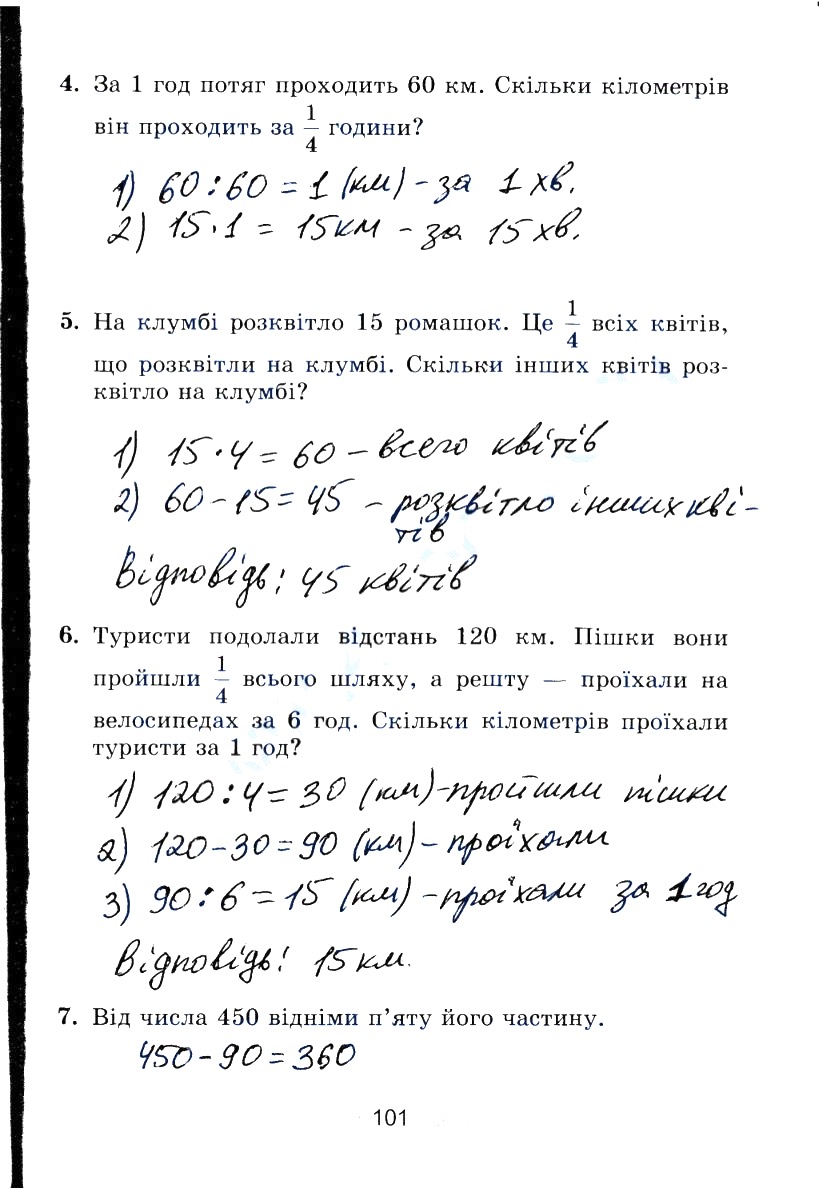 4. За 1 год потяг проходить 60 км. Скільки кілометрів
він проходить за 1/4 години?
1) 60 : 60 = 1 (км) - за 1 хв.
2) 15 · 1 = 15 км - за 15 хв.
5. На клумбі розквітло 15 ромашок. Це 1/4 всіх квітів,
що розквітли на клумбі. Скільки інших квітів роз-
квітло на клумбі?
1) 15 · 4 = 60 - всего квітів
2) 60 - 15 = 45 - розквітло інших кві-
тів
Відповідь: 45 квітів
6. Туристи подолали відстань 120 км. Пішки вони
пройшли 1/4 всього шляху, а решту — проїхали на
велосипедах за 6 год. Скільки кілометрів проїхали
туристи за 1 год?
1) 120 : 4 = 30 (км) - пройшли пішки
2) 120 - 30 = 90 (км) - проїхали
3) 90 : 6 = 15 (км) - проїхали за 1 год
Відповідь: 15 км.
7. Від числа 450 відніми п'яту його частину.
450 - 90 = 360
101